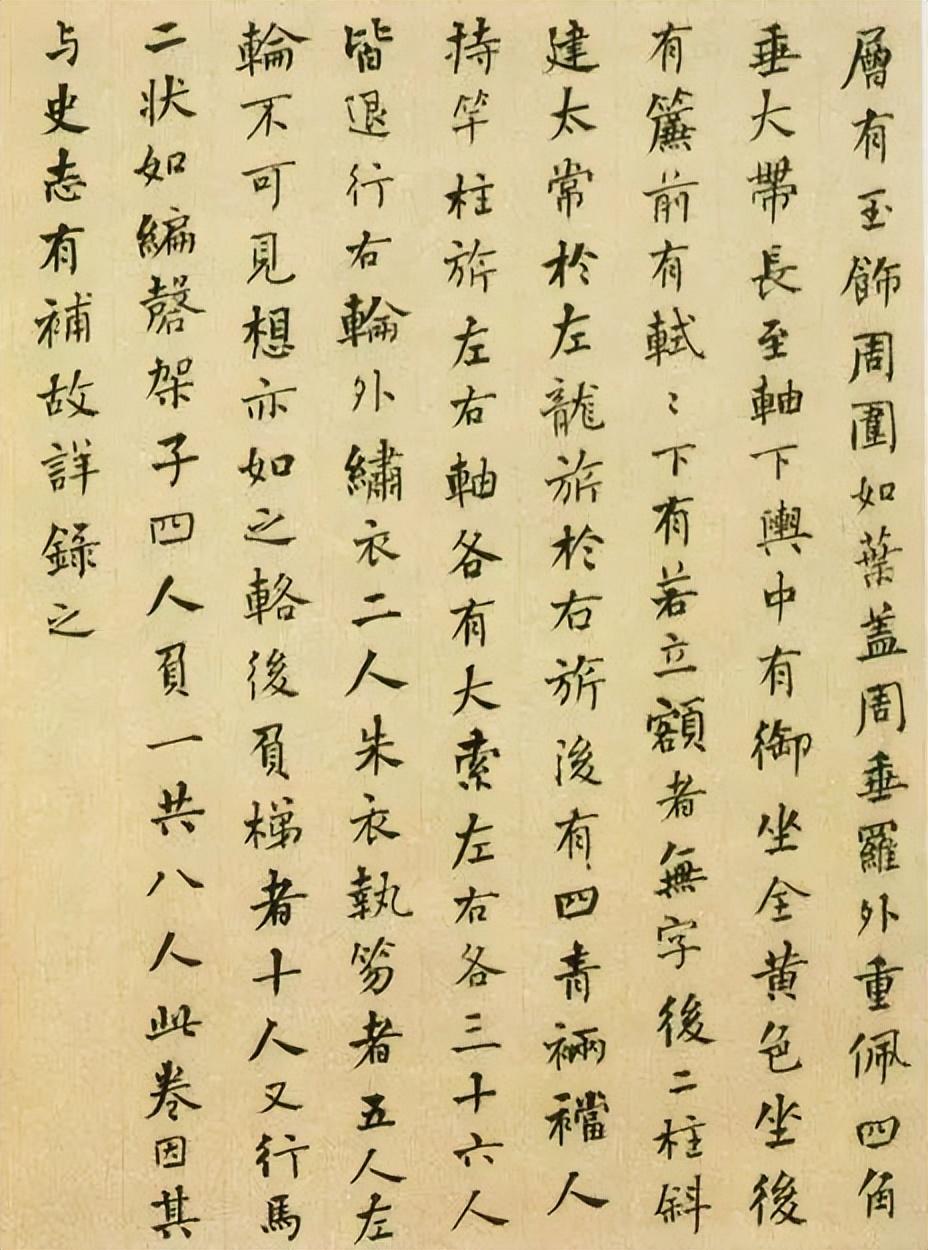 層有玉飾周圍如葉蓋周垂羅外重佩四角
垂大帶長至軸下輿中有御坐全黃色坐後
有簾前有軾〻下有若立額者無字後二柱斜
建太常於左龍旂於右旂後有四青裲襠人
持竿柱旂左右軸各有大索左右各三十六人
皆退行右輪外繡衣二人朱衣執笏者五人左
輪不可見想亦如之輅後負梯者十人又行馬
二狀如編磬架子四人負一共八人此卷因其
与史志有補故詳錄之